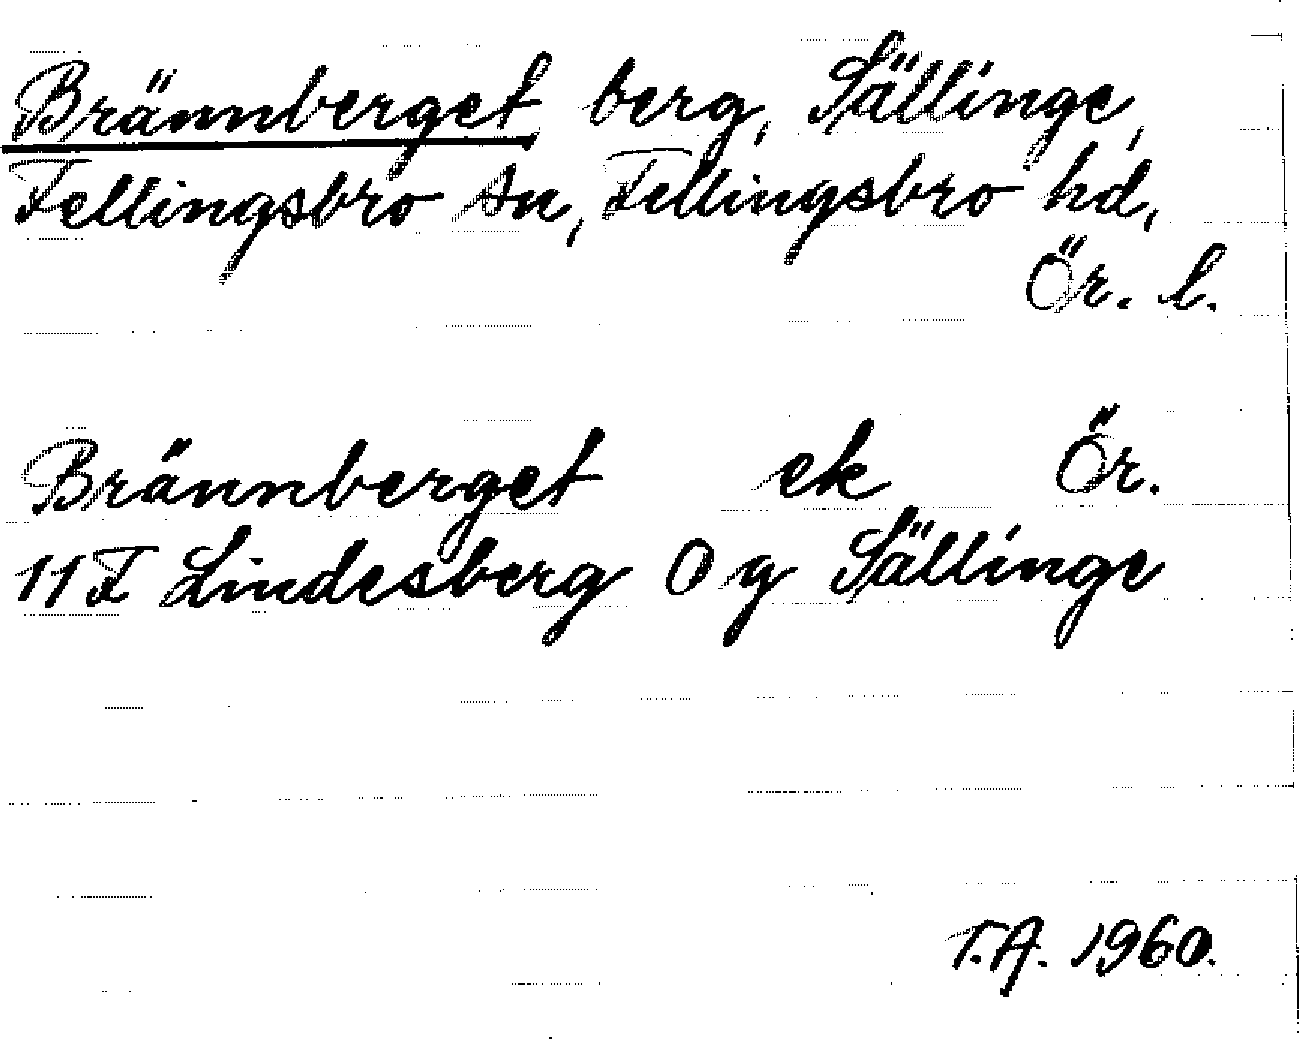 Brännberget berg, Sällinge,
Fellingsbro sn, Fellingsbro hd,
Ör. l.
Brännberget ek Ör.
11F Lindesberg O g Sällinge
T.A. 1960.